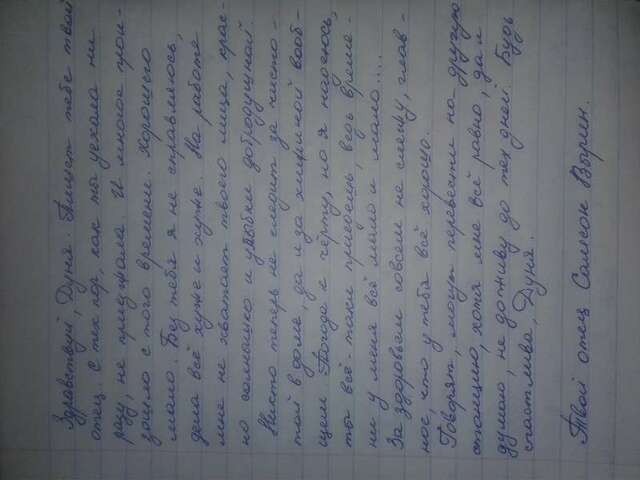 Здравствуй, Дуня. Пишет тебе твой
отец. С тех пор, как ты уехала ни
разу, не приезжала. И многое прои-
зошло с того времени. Хорошего
мало. Без тебя я не справляюсь,
дела всё хуже и хуже. На работе
мне не хватает твоего лица, крас-
но солнышко и улыбки добродушной.
Никто теперь не следит за чисто-
той в доме, да и за хижиной вооб-
щем. Погода к черту, но я надеюсь,
ты всё-таки приедешь, ведь време-
ни у меня всё мало и мало....
За здоровьем совсем не слежу, глав-
ное, что у тебя всё хорошо.
Говорят, могут перевести на другую
станцию, хотя мне всё равно, да и
думаю, не доживу до тех дней. Будь
счастлива, Дуня.
Твой отец Самсон Вырин.